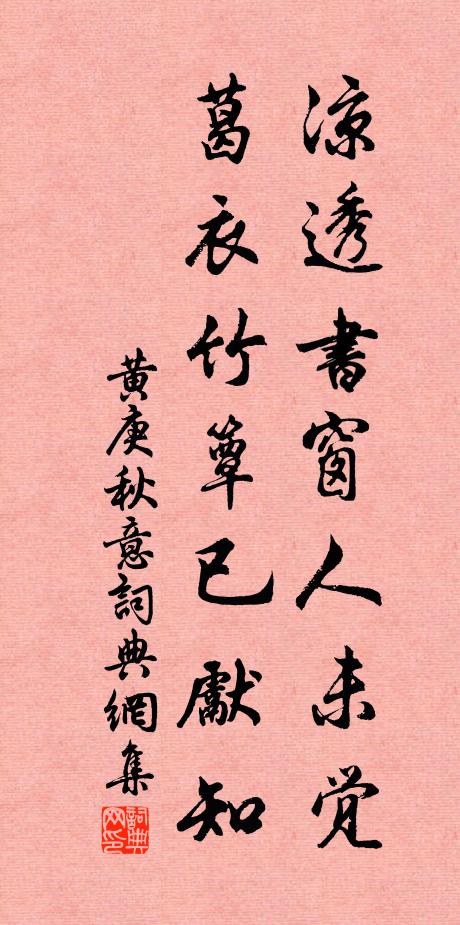 凉透書窗人未觉
葛衣竹簟已獻知
黄庚秋意詞典網集
詞典网印